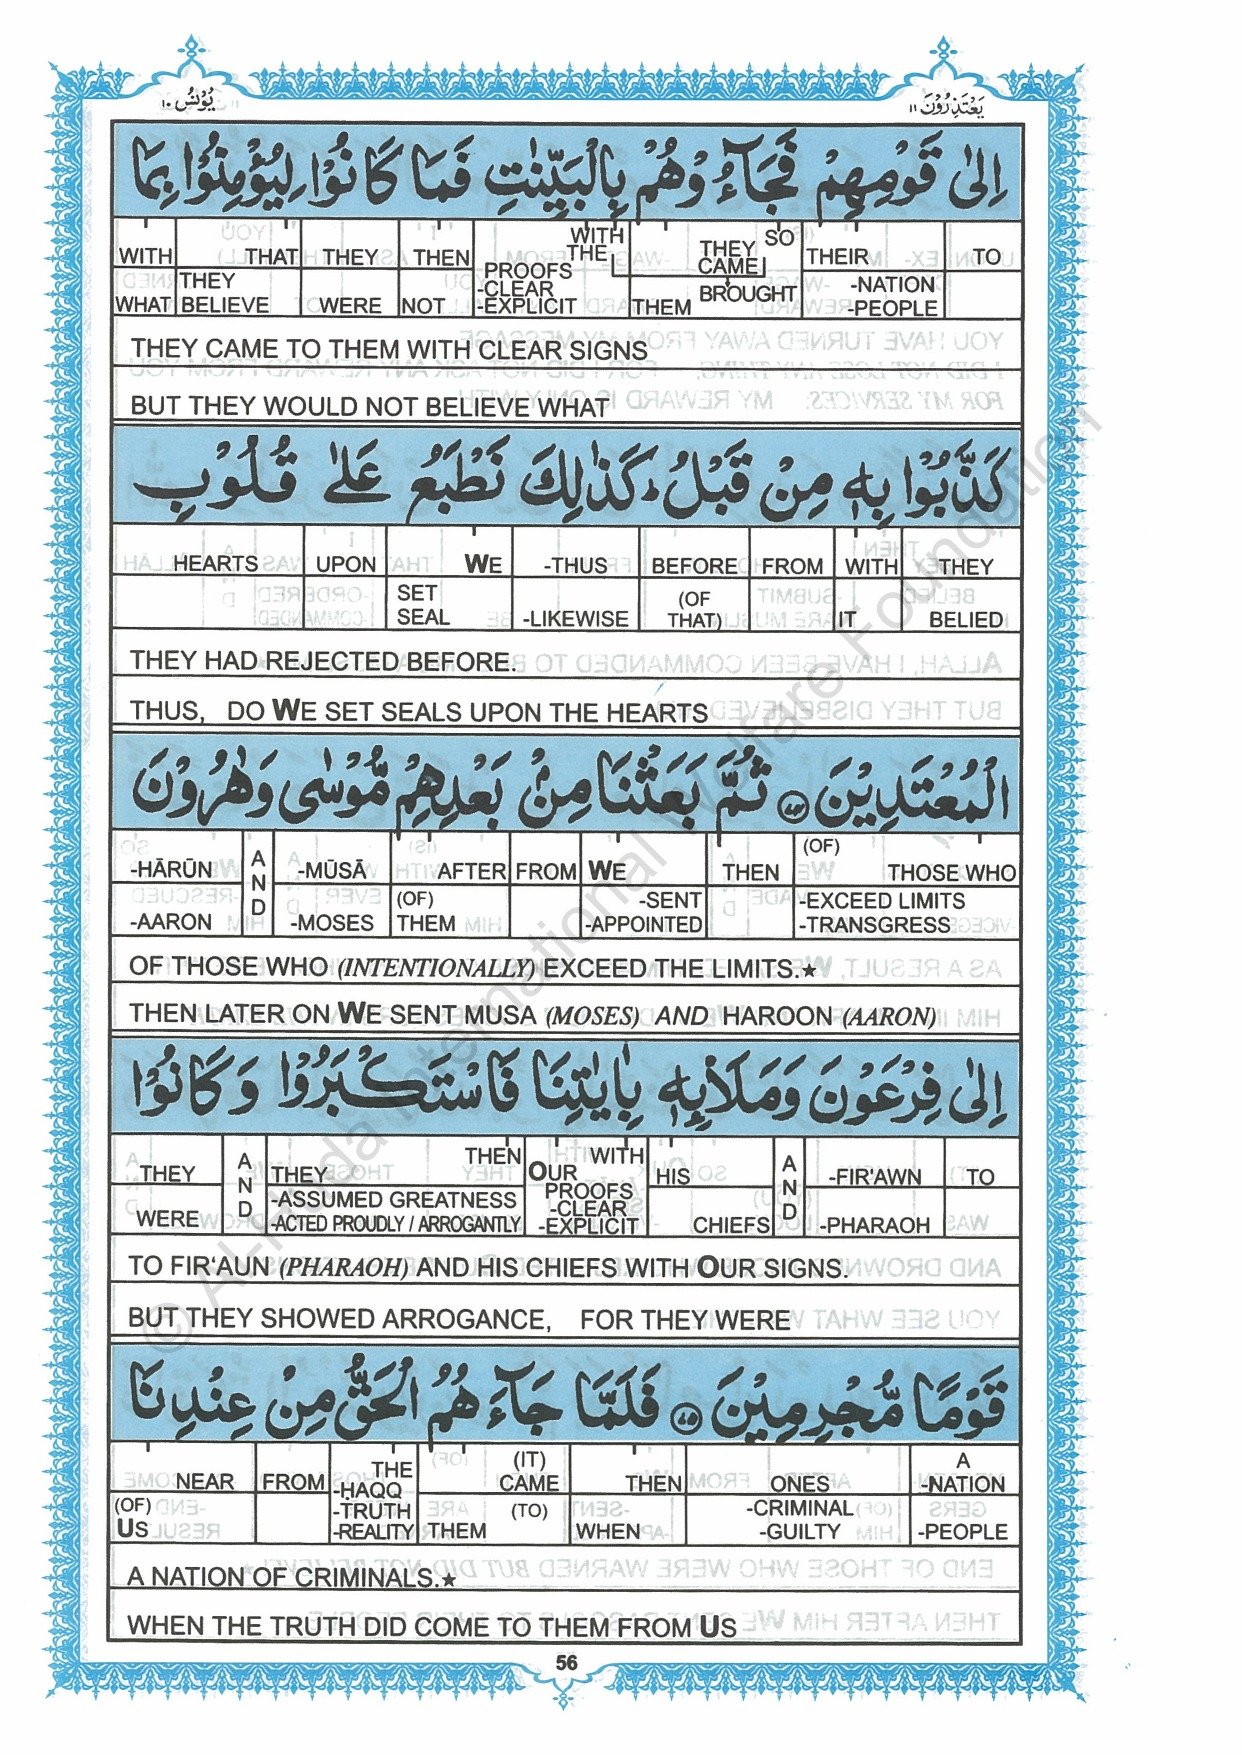 يَعْتَذِرُوْنَ ١١
يُوْنُس ١٠
اِلٰى قَوْمِهِمْ فَجَآءُوْهُمْ بِالْبَيِّنٰتِ فَمَا كَانُوْا لِيُؤْمِنُوْا بِمَا
WITH THAT THEY THEN WITH THE THEY CAME SO THEIR TO
WHAT THEY BELIEVE WERE NOT PROOFS -CLEAR -EXPLICIT THEM BROUGHT -NATION -PEOPLE
THEY CAME TO THEM WITH CLEAR SIGNS
BUT THEY WOULD NOT BELIEVE WHAT
كَذَّبُوْا بِهٖ مِنْ قَبْلُ ؕ كَذٰلِكَ نَطْبَعُ عَلٰى قُلُوْبِ
HEARTS UPON WE -THUS BEFORE FROM WITH THEY
SET SEAL -LIKEWISE (OF THAT) IT BELIED
THEY HAD REJECTED BEFORE.
THUS, DO WE SET SEALS UPON THE HEARTS
الْمُعْتَدِيْنَ ﴿٧٤﴾ ثُمَّ بَعَثْنَا مِنْۢ بَعْدِهِمْ مُّوْسٰى وَهٰرُوْنَ
-HĀRŪN AND -MŪSĀ AFTER FROM WE THEN (OF) THOSE WHO
-AARON -MOSES (OF) THEM -SENT -APPOINTED -EXCEED LIMITS -TRANSGRESS
OF THOSE WHO (INTENTIONALLY) EXCEED THE LIMITS.★
THEN LATER ON WE SENT MUSA (MOSES) AND HAROON (AARON)
اِلٰى فِرْعَوْنَ وَمَلَا۟ئِهٖ بِاٰيٰتِنَا فَاسْتَكْبَرُوْا وَكَانُوْا
THEY AND THEN THEY WITH OUR HIS AND -FIR'AWN TO
WERE -ASSUMED GREATNESS -ACTED PROUDLY / ARROGANTLY PROOFS -CLEAR -EXPLICIT CHIEFS -PHARAOH
TO FIR'AUN (PHARAOH) AND HIS CHIEFS WITH OUR SIGNS.
BUT THEY SHOWED ARROGANCE, FOR THEY WERE
قَوْمًا مُّجْرِمِيْنَ ﴿٧٥﴾ فَلَمَّا جَآءَهُمُ الْحَقُّ مِنْ عِنْدِنَا
NEAR FROM THE -HAQQ (IT) CAME THEN ONES A -NATION
(OF) US -TRUTH -REALITY (TO) THEM WHEN -CRIMINAL -GUILTY -PEOPLE
A NATION OF CRIMINALS.★
WHEN THE TRUTH DID COME TO THEM FROM US
56
© Al-Huda International Welfare Foundation